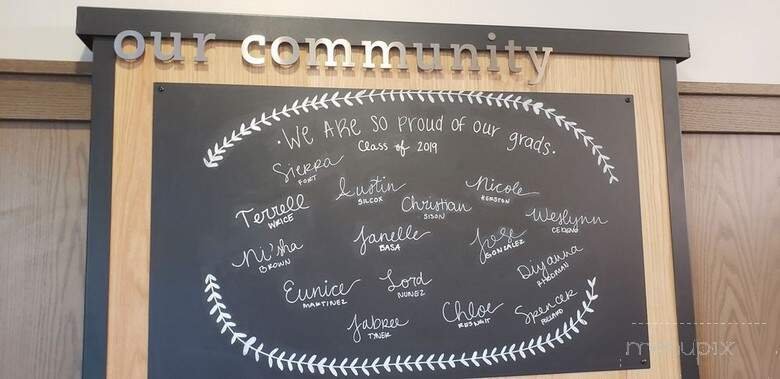 our community
We are so proud of our grads.
Class of 2019
Sierra
Fort
Austin
Silcox
Nicole
Kerston
Terrell
Wrice
Christian
Sison
Weslynn
Cedeno
Ni'sha
Brown
Janelle
Basa
Jose
Gonzalez
Diyanna
Eunice
Martinez
Lord
Nunez
Jabree
Tyner
Chloe
Spencer
Pollard
menupix